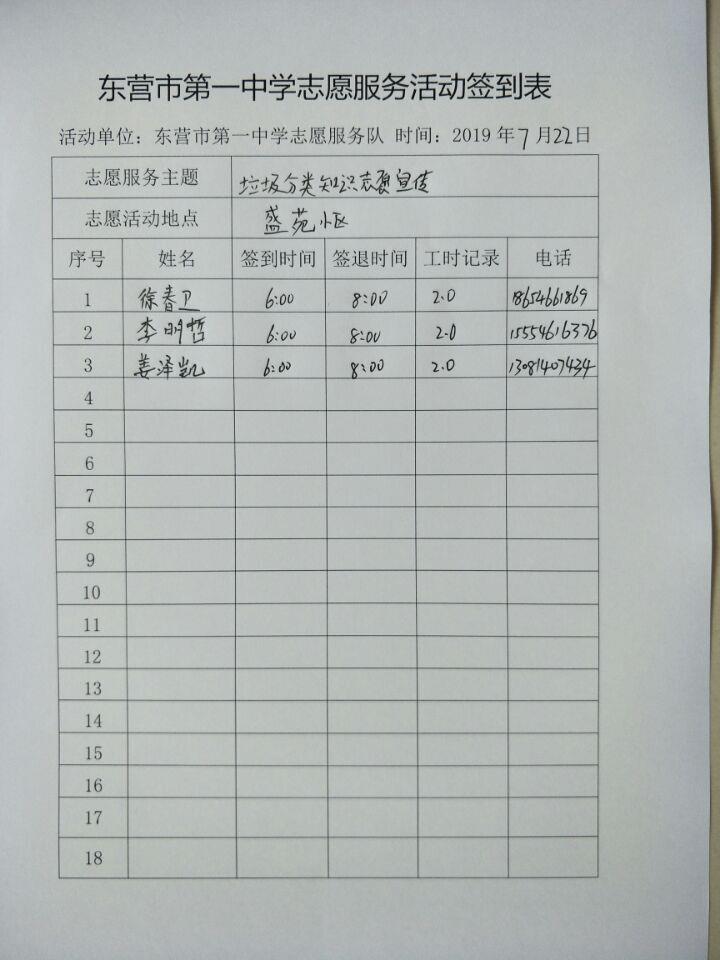 东营市第一中学志愿服务活动签到表
活动单位：东营市第一中学志愿服务队 时间：2019年7月22日
志愿服务主题 垃圾分类知识志愿宣传
志愿活动地点 盛苑小区
序号 姓名 签到时间 签退时间 工时记录 电话
1 徐春卫 6:00 8:00 2.0 18654661869
2 李明哲 6:00 8:00 2.0 15554616376
3 姜泽凯 6:00 8:00 2.0 13081407434
4
5
6
7
8
9
10
11
12
13
14
15
16
17
18